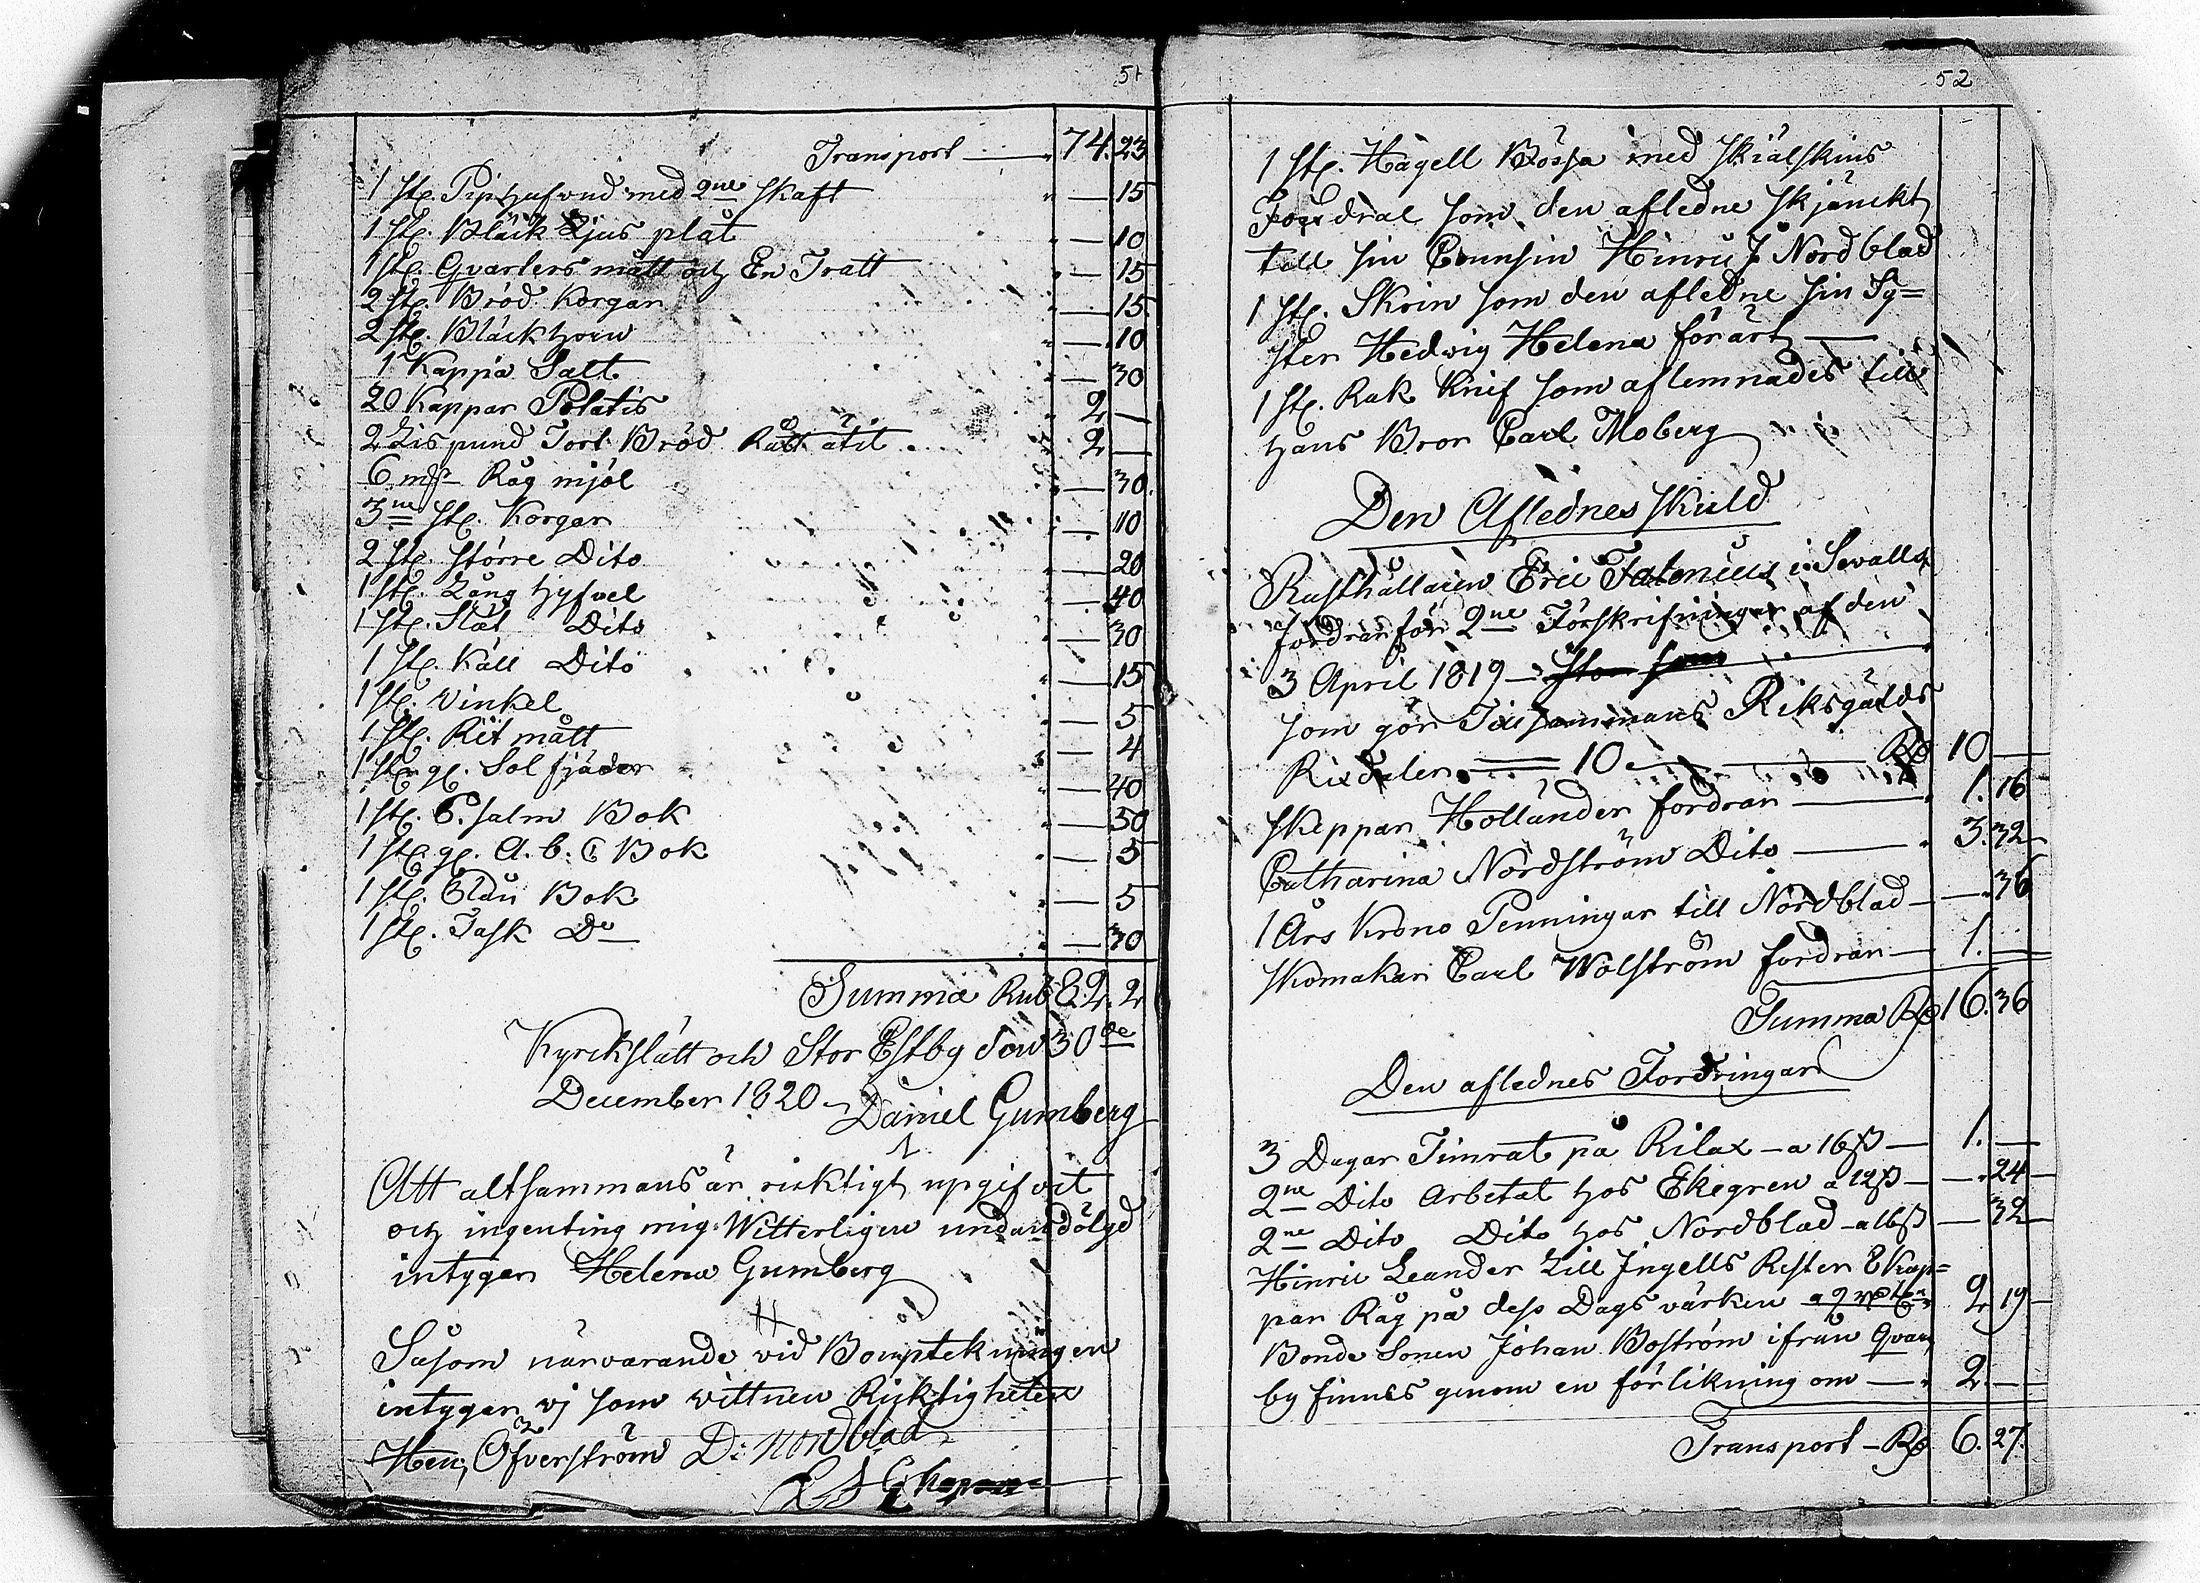 51
Transport — 74. 23
1 st. Piphufvud med 2ne skaft " — 15
1 st. Bläck Ljus plåt " — 10
1 st. Qvarters mått och En Tratt " — 15
2 st. Bröd Korgar — 15
2 st. Bläckhorn " — 10
1 Kappa Salt " — 30
20 Kappar Potatis " 2 —
2 Lispund Tort Bröd Rått åtit " 2 —
6 m Råg mjöl " — 30
3ne st. Korgar " — 10
2 st. större Dito " — 20
1 st. Lång hyfvel " — 40
1 st. Slät Dito " — 30
1 st. Käll Dito " — 15
1 st. Vinkel " — 5
1 st. Rit mått " — 4
1 st. gl. Sol fjäder " — 40
1 st. P.salm Bok " — 50
1 st. gl. A. b: C Bok " — 5
1 st. Blåu Bok " — 5
1 st. Task Do " — 30
Summa Rub 82. 2
Kyrckslätt och Stor Estby den 30de
December 1820 Daniel Gumberg
Att altsammans är ricktigt upgifvit
och ingenting mig Witterligen undandölgd
intygar Helena Gumberg
Såsom närvarande vid Boupteckningen
intygar vi som wittnen Ricktigheten
Hen: Öfverström D: Nordblad
52
1 st. Hagell Bössa med Skiälskins
Foudral som den afledne skjänckt
till sin Cousin Hinric J Nordblad
1 st. Skrin som den afledne sin Sy=
ster Hedvig Helena förärt —
1 st. Rak Knif som aflemnades till
hans Bror Carl Moberg
Den Aflednes skuld
Rusthållaren Eric Falenius i Sevalls
fordrar för 2ne Förskrifningar af den
3 April 1819 —
som gör Tillsammans Riksgälds
Rixdaler — 10 — Rd 10 —
Skeppar Hollander fordrar — " 1. 16
Catharina Nordström Dito — " 3. 32
1 Års Krono Penningar till Nordblad — — " 36
Skomakar Carl Wolström fordrar — 1. —
Summa Rd 16. 36
Den aflednes Fordringar
3 Dagar Timrat på Rilax — a 16 ß — 1. —
2ne Dito Arbetat hos Ekegren a 12 ß — — " 24
2ne Dito Dito hos Nordblad a 16 ß — 32
Hinric Leander Lill Ingells Rester 8 Kap=
par Råg på dess Dags värken 2 19
Bonde Sonen Johan Boström ifrån Qvar
by finnes genom en förlikning om — " 2. —
Transport — Rd 6. 27.